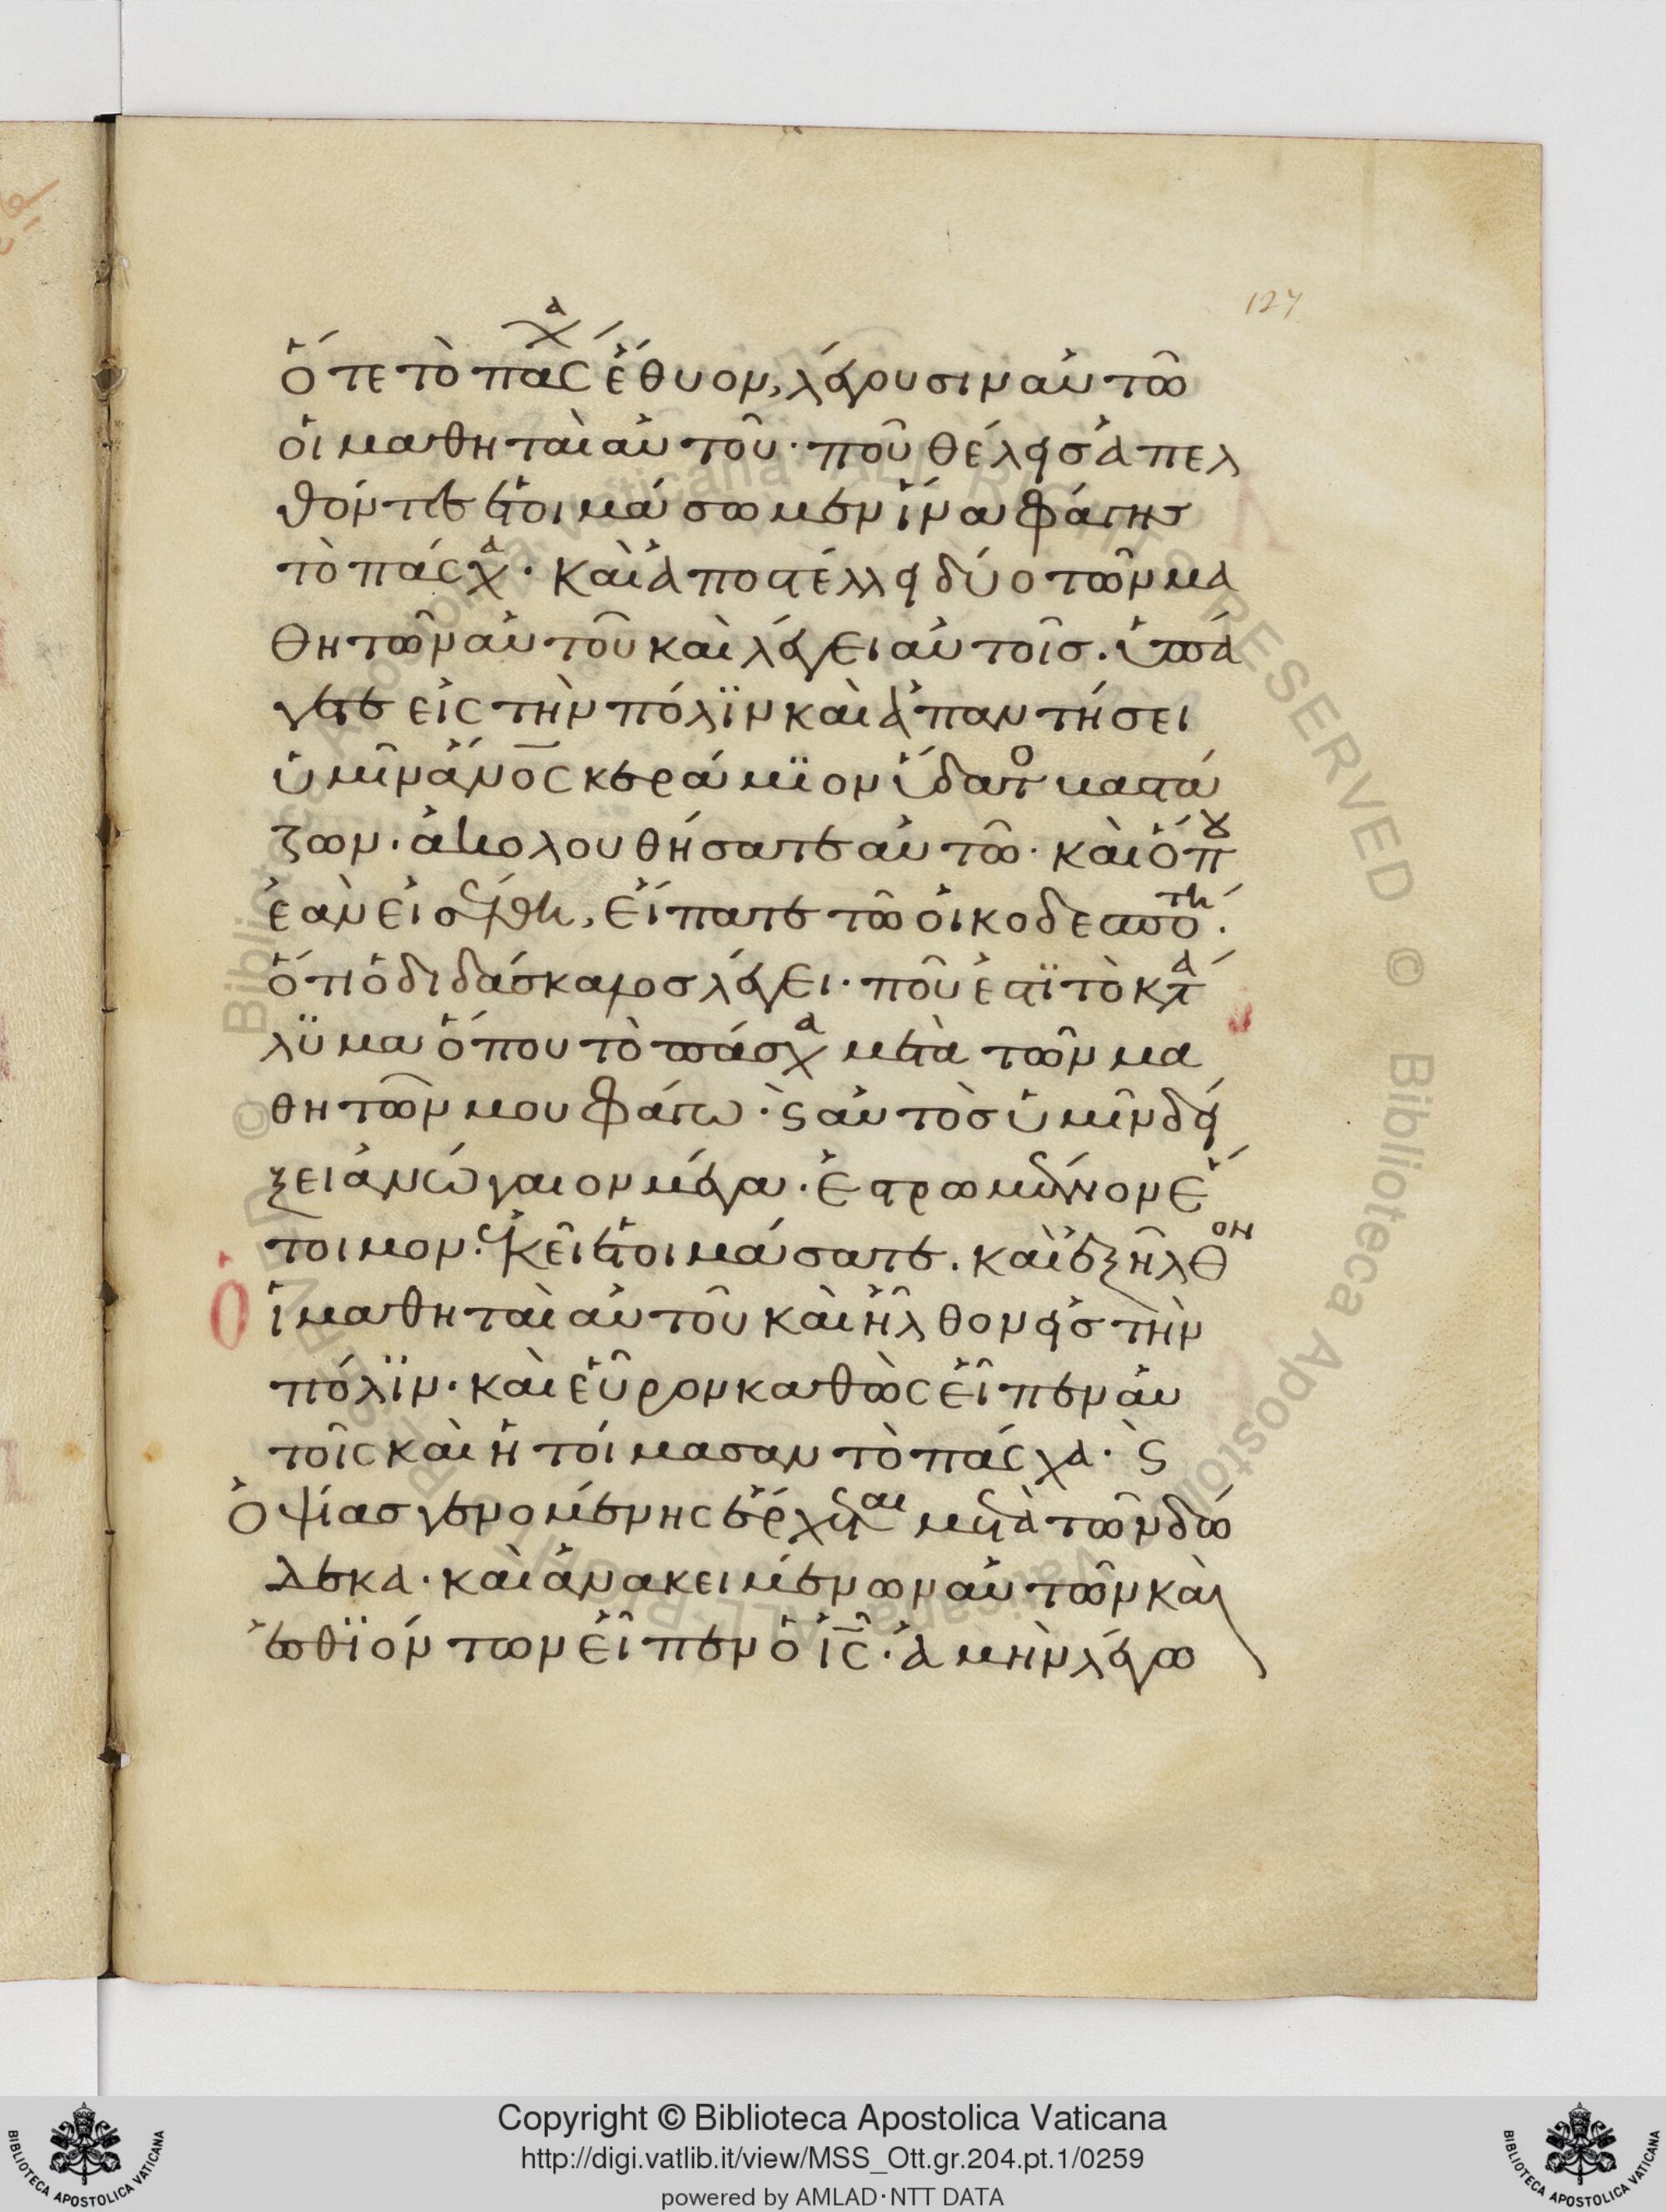 127
ὅτε τὸ πασχα ἔθυον, λέγουσιν αὐτῶ
ὁι μαθηταὶ αὐτοῦ· ποῦ θέλεις ἀπελ
θόντες ἑτοιμάσωμεν ἵνα φάγης
τὸ πάσχα· καὶ ἀποστέλλει δύο τῶν μα
θητῶν αὐτοῦ καὶ λέγει αὐτοῖς· ὑπά
γετε εἰς τὴν πόλϊν καὶ ἀπαντήσει
ὑμῖν ἄνος κεράμϊον ὕδατο βαστά
ζων· ἀκολουθήσατε αὐτῶ· καὶ ὅπου
ἐὰν εἰσέλθη, εἴπατε τῶ ὀικοδεσπότη·
ὅτι ὁ διδάσκαλος λέγει· ποῦ ἐστϊ τὸ κατά
λϋμα ὅπου τὸ πάσχα μετὰ τῶν μα
θητῶν μου φάγω· ϛ αὐτὸς ὑμῖν δεί
ξει ἀνώγαιον μέγα· ἐστρωμένον ἕ
τοιμον· ἐκεῖ ἑτοιμάσατε. καὶ ἐξῆλθον
ὁι μαθηταὶ αὐτοῦ καὶ ἦλθον εἰς τὴν
πόλϊν· καὶ εὗρον καθὼς εἶπεν αὐ
τοῖς καὶ ἡτοίμασαν τὸ πάσχα· ϛ
ὀψίας γενομένης ἔρχεται μετὰ τῶν δώ
δεκα· καὶ ἀνακειμένων αὐτῶν καὶ
ἐσθϊόντων εἶπεν ὁ ἰς· ἀμὴν λέγω
© Biblioteca Apostolica Vaticana ALL RIGHTS RESERVED © Biblioteca Apostolica Vaticana ALL RIGHTS RESERVED
Copyright © Biblioteca Apostolica Vaticana
http://digi.vatlib.it/view/MSS_Ott.gr.204.pt.1/0259
powered by AMLAD·NTT DATA
BIBLIOTECA APOSTOLICA VATICANA
BIBLIOTECA APOSTOLICA VATICANA